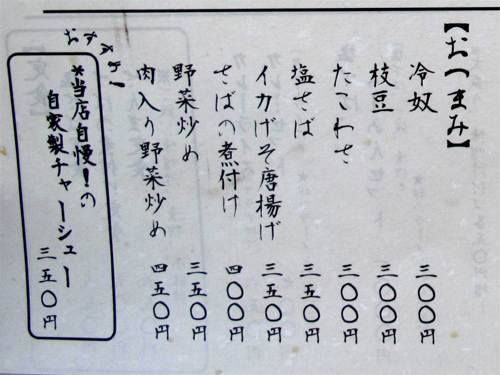 【おつまみ】
冷奴 三〇〇円
枝豆 三〇〇円
たこわさ 三〇〇円
塩さば 三五〇円
イカげそ唐揚げ 三五〇円
さばの煮付け 四〇〇円
野菜炒め 三五〇円
肉入り野菜炒め 四五〇円
おすすめ!
*当店自慢!の
自家製チャーシュー
三五〇円